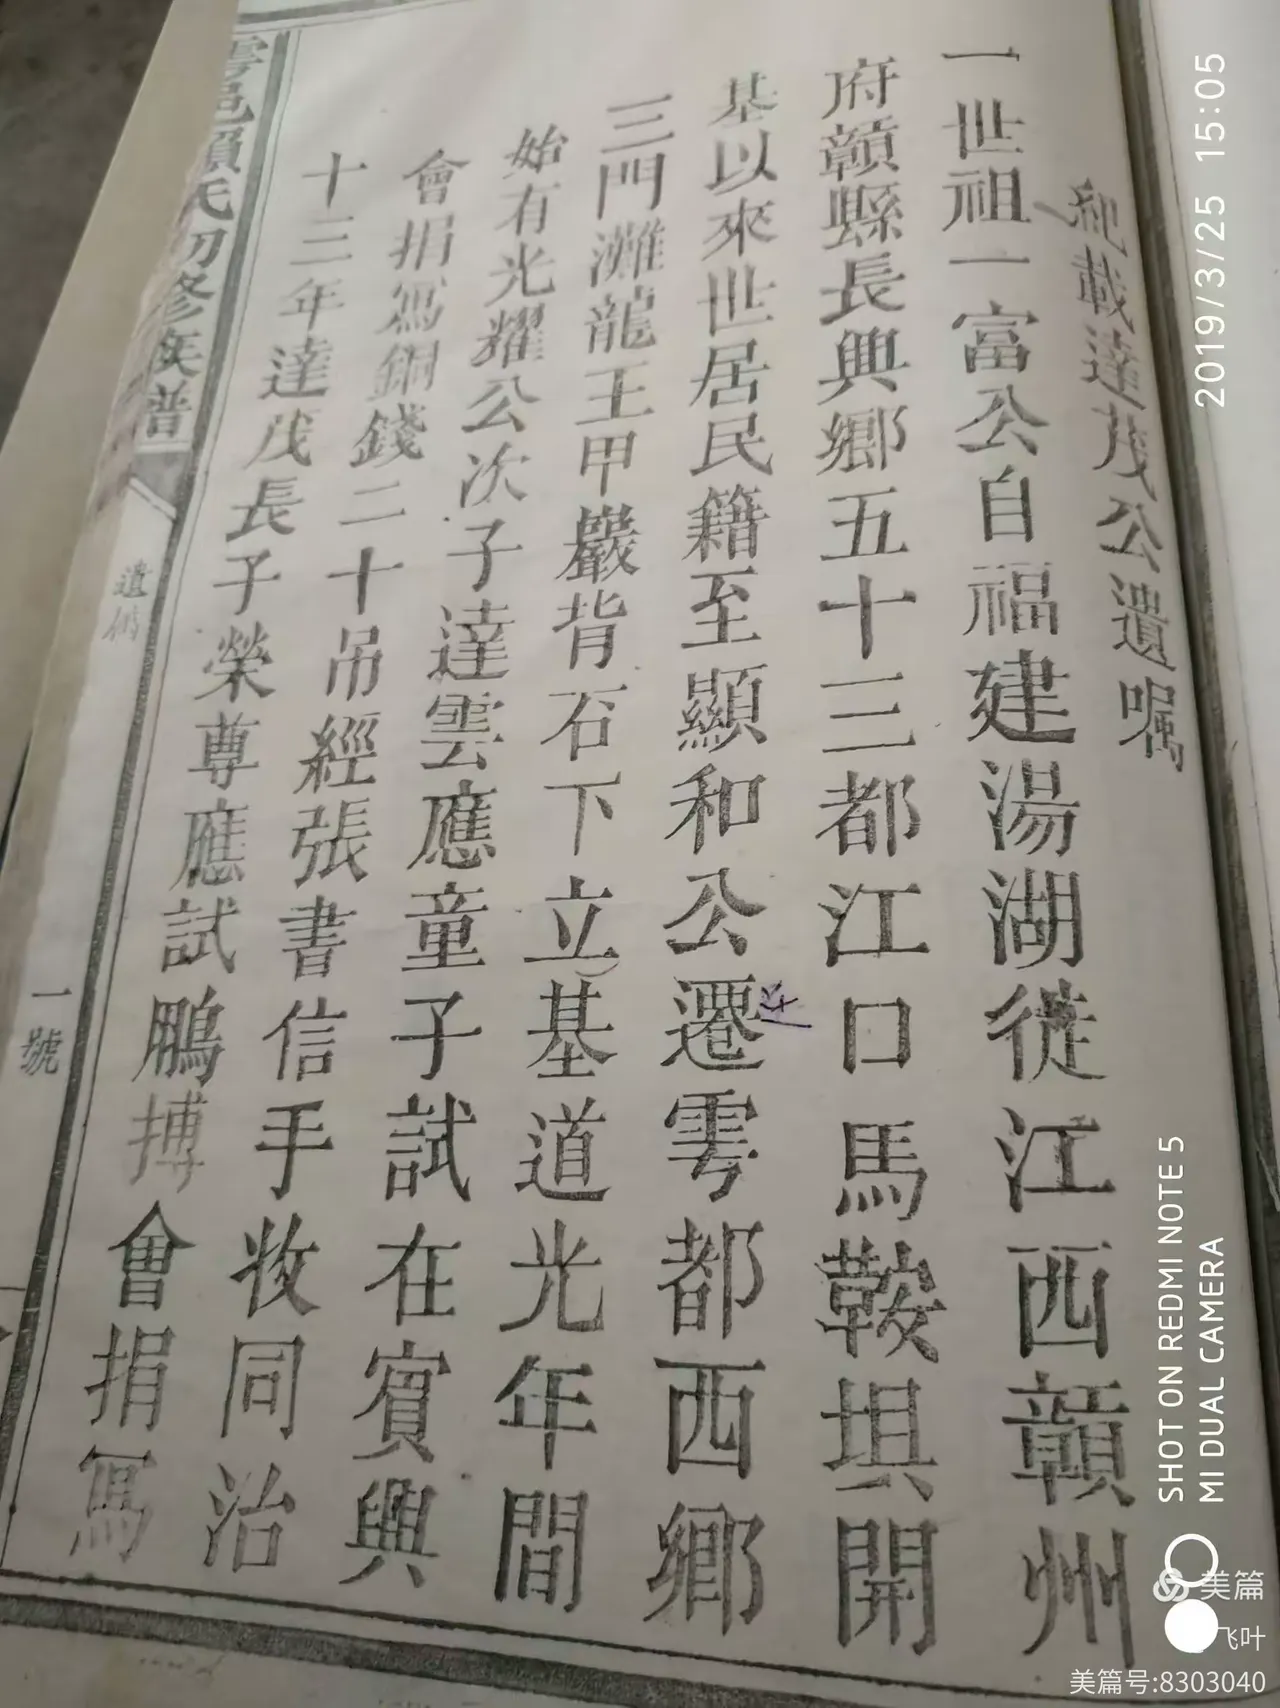 紀載達茂公遺嘱
一世祖一富公自福建湯湖徙江西贛州
府贛縣長興鄉五十三都江口馬鞍垻開
基以來世居民籍至顯和公遷雩都西鄉
迁
三門灘龍王甲巖背石下立基道光年間
始有光耀公次子達雲應童子試在賓興
會捐寫銅錢二十吊經張書信手收同治
十三年達茂長子榮尊應試鵬搏會捐寫
雩邑賴氏初修族譜
遺嘱
一號
2019/3/25 15:05
SHOT ON REDMI NOTE 5
MI DUAL CAMERA
美篇
飞叶
美篇号:8303040